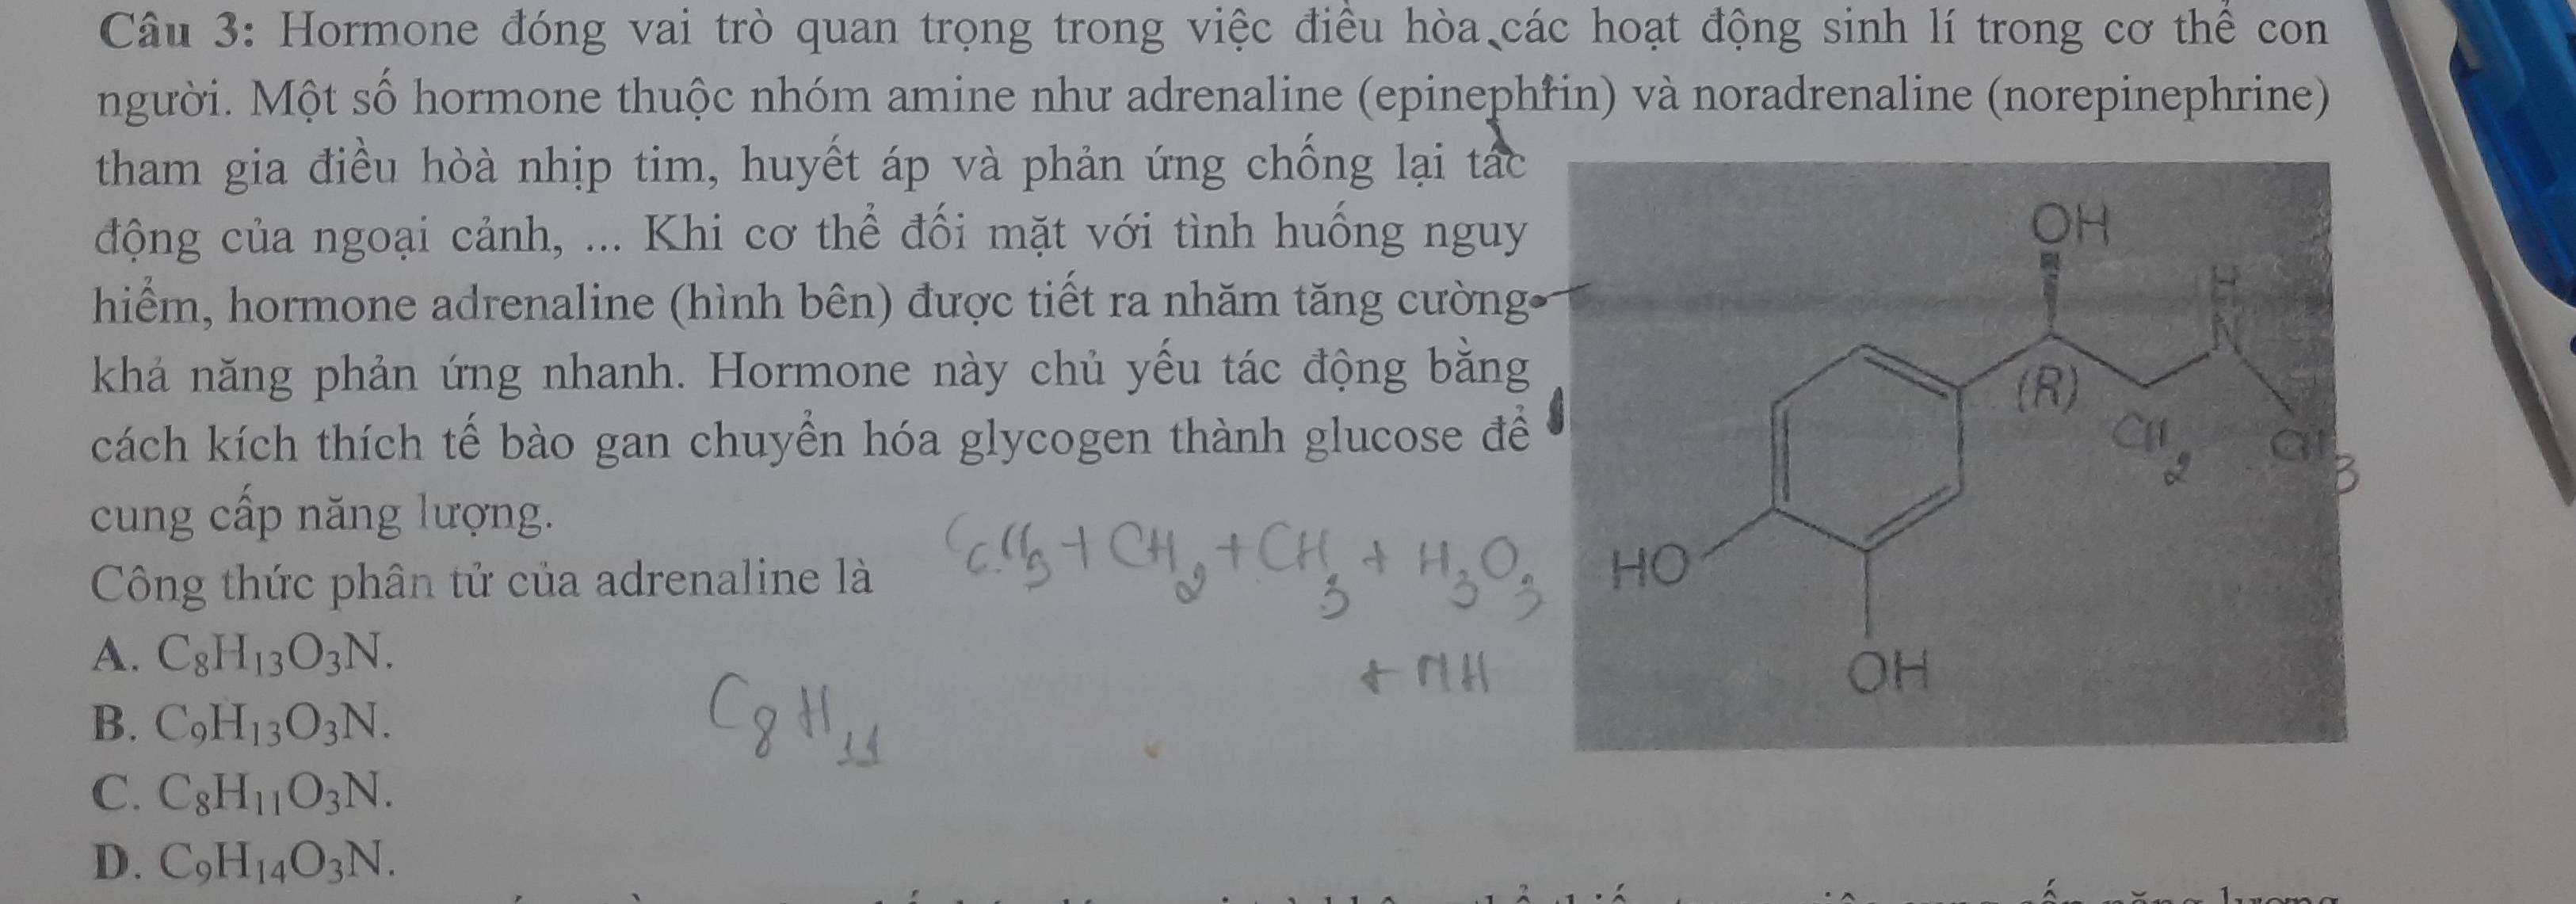 Câu 3: Hormone đóng vai trò quan trọng trong việc điều hòa các hoạt động sinh lí trong cơ thể con
người. Một số hormone thuộc nhóm amine như adrenaline (epinephrin) và noradrenaline (norepinephrine)
tham gia điều hòà nhịp tim, huyết áp và phản ứng chống lại tác
động của ngoại cảnh, ... Khi cơ thể đối mặt với tình huống nguy
hiểm, hormone adrenaline (hình bên) được tiết ra nhằm tăng cường
khả năng phản ứng nhanh. Hormone này chủ yếu tác động bằng
cách kích thích tế bào gan chuyển hóa glycogen thành glucose để
cung cấp năng lượng.
OH
H
N
(R)
CH2
CH3
HO
OH
+ CH2 + CH3 + H3O3
+ NH
Công thức phân tử của adrenaline là
A. C8H13O3N.
B. C9H13O3N.
C. C8H11O3N.
D. C9H14O3N.
C8H11